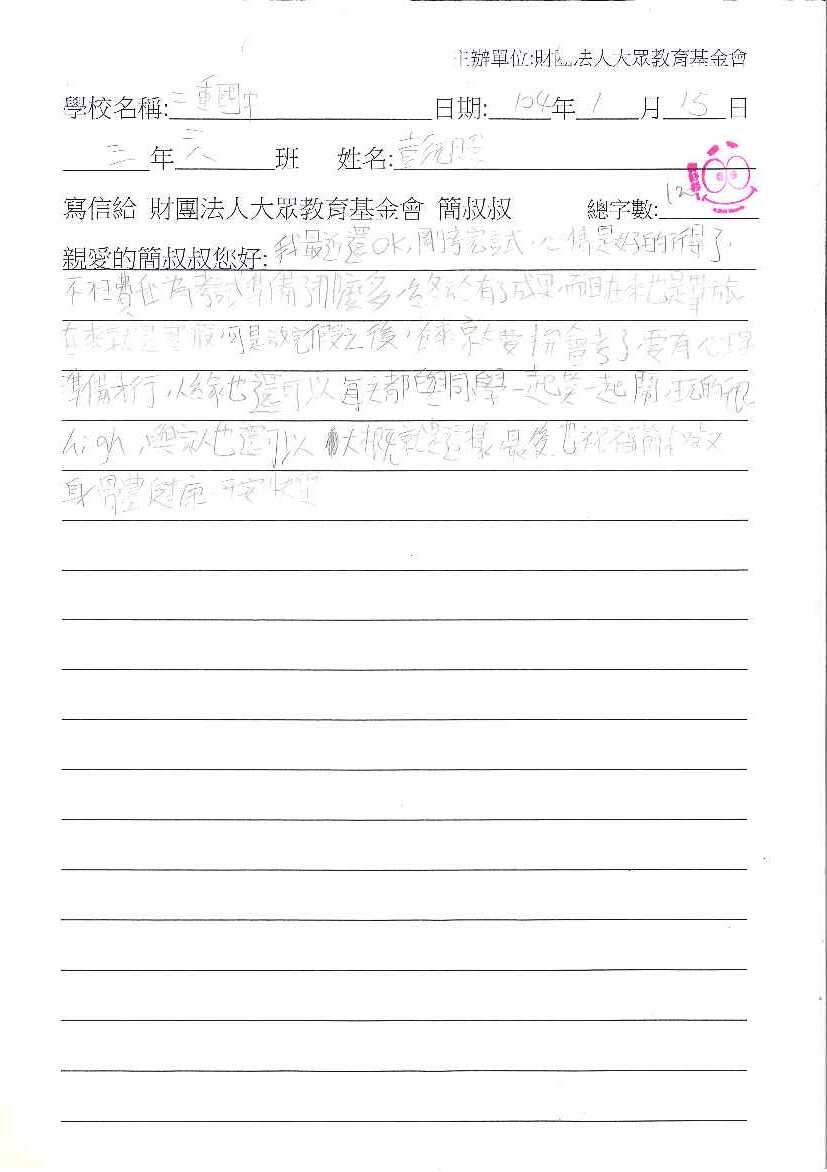 主辦單位:財團法人大眾教育基金會
學校名稱:三重國中 日期:104年1月15日
三年三八班 姓名:
寫信給 財團法人大眾教育基金會 簡叔叔 總字數:12
親愛的簡叔叔您好:我最近還OK,剛考完試,心情是好的不得了,
不枉費我為考試準備那麼多,終於有了成果,而且在來也是畢旅
在來就是寒假,可是放完假之後,在來就要拚會考了,要有心理
準備才行,以缘也還可以每天都與同學一起笑一起鬧,玩的很
high,與家人也還可以,大概就是這樣,最後也祝福簡叔叔
身體健康.平安快樂